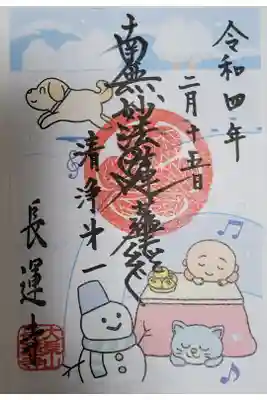 令和四年
二月十五日
南無妙法蓮華経
清浄
長運寺